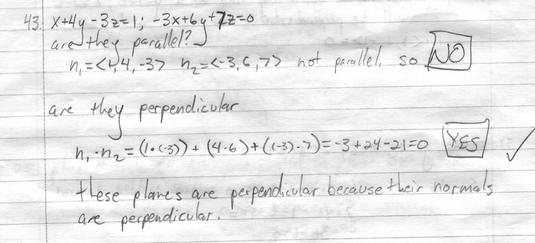 43. x+4y-3z=1; -3x+6y+7z=0
are they parallel?
n₁=<1,4,-3> n₂=<-3,6,7> not parallel, so NO
are they perpendicular
n₁·n₂=(1·(-3))+(4·6)+((-3)·7)=-3+24-21=0 YES ✓
these planes are perpendicular because their normals
are perpendicular.